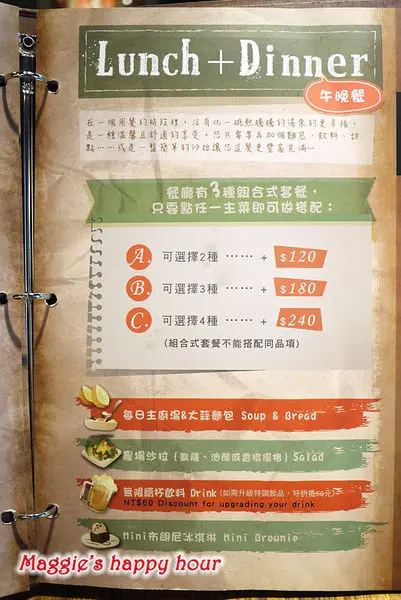 Lunch+Dinner
午晚餐
在一個用餐的時段裡，沒有比一碗熱騰騰的湯來的更幸福，
是一種溫馨且舒適的享受。您只需要再加個麵包、飲料、甜
點……或是一盤簡單的沙拉讓您這餐更豐富見滿…
餐廳有3種組合式套餐，
只要點任一主菜即可做搭配：
A. 可選擇2種 …… + $120
B. 可選擇3種 …… + $180
C. 可選擇4種 …… + $240
(組合式套餐不能搭配同品項)
每日主廚湯&大蒜麵包 Soup & Bread
農場沙拉 (凱薩、油醋或香橙優格) Salad
無限續杯飲料 Drink (如需升級特調飲品，可折抵60元)
NT$60 Discount for upgrading your drink
Mini布朗尼冰淇淋 Mini Brownie
Maggie's happy hour